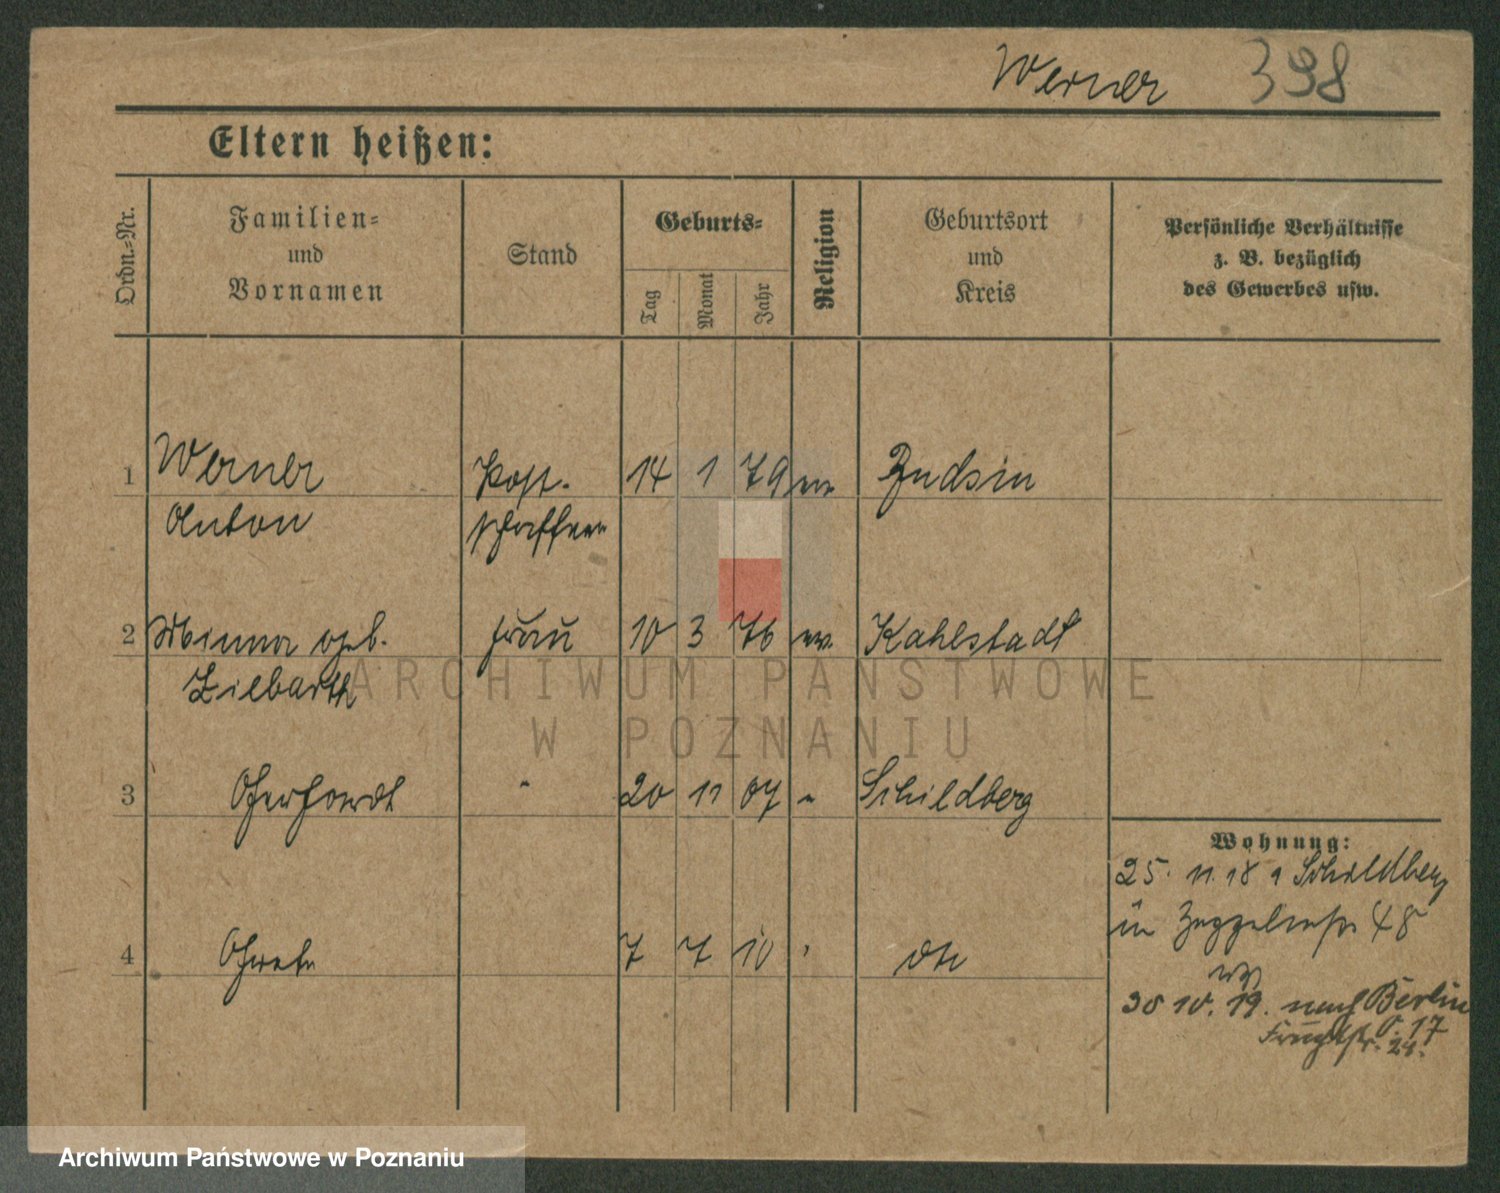 Werner 398
Eltern heißen:
Ordn.=Nr.
Familien=
und
Vornamen
Stand
Geburts=
Tag
Monat
Jahr
Religion
Geburtsort
und
Kreis
Persönliche Verhältnisse
z. B. bezüglich
des Gewerbes usw.
1 Werner Post- 14 1 79 ev Budsin
Anton schaffner
2 Minna geb. Frau 10 3 76 ev. Kahlstadt
Ziebarth
3 Gerhardt " 20 11 07 " Schildberg
4 Grete 7 7 10 " dto
Wohnung:
25. 11. 18 Schildberg
in 48
30 10. 19. nach Berlin
O. 17
21.
ARCHIWUM PAŃSTWOWE
W POZNANIU
Archiwum Państwowe w Poznaniu